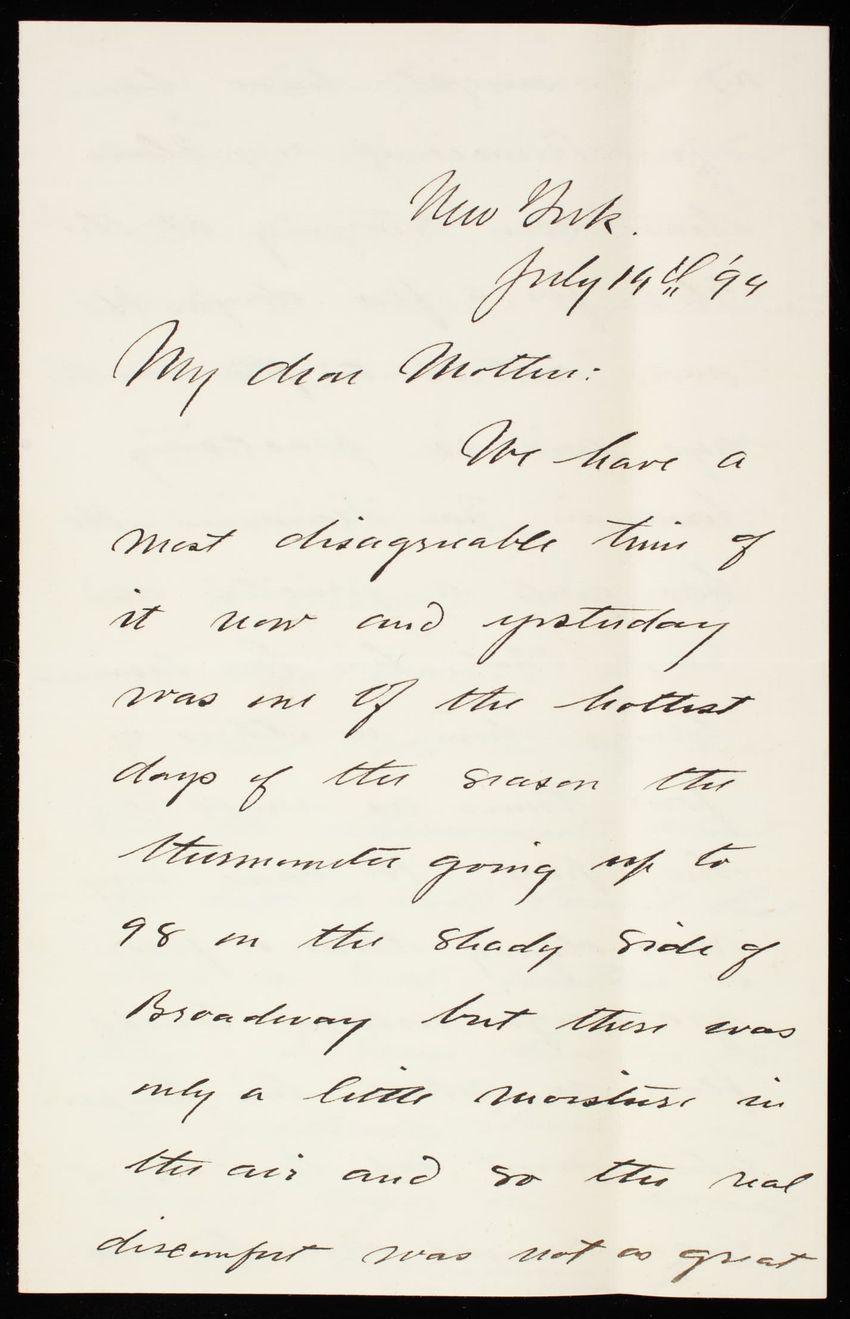 New York.
July 14th '94
My dear Mother:
We have a
most disagreeable time of
it now and yesterday
was one of the hottest
days of the season the
thermometer going up to
98 on the shady side of
Broadway but there was
only a little moisture in
the air and so the real
discomfort was not as great